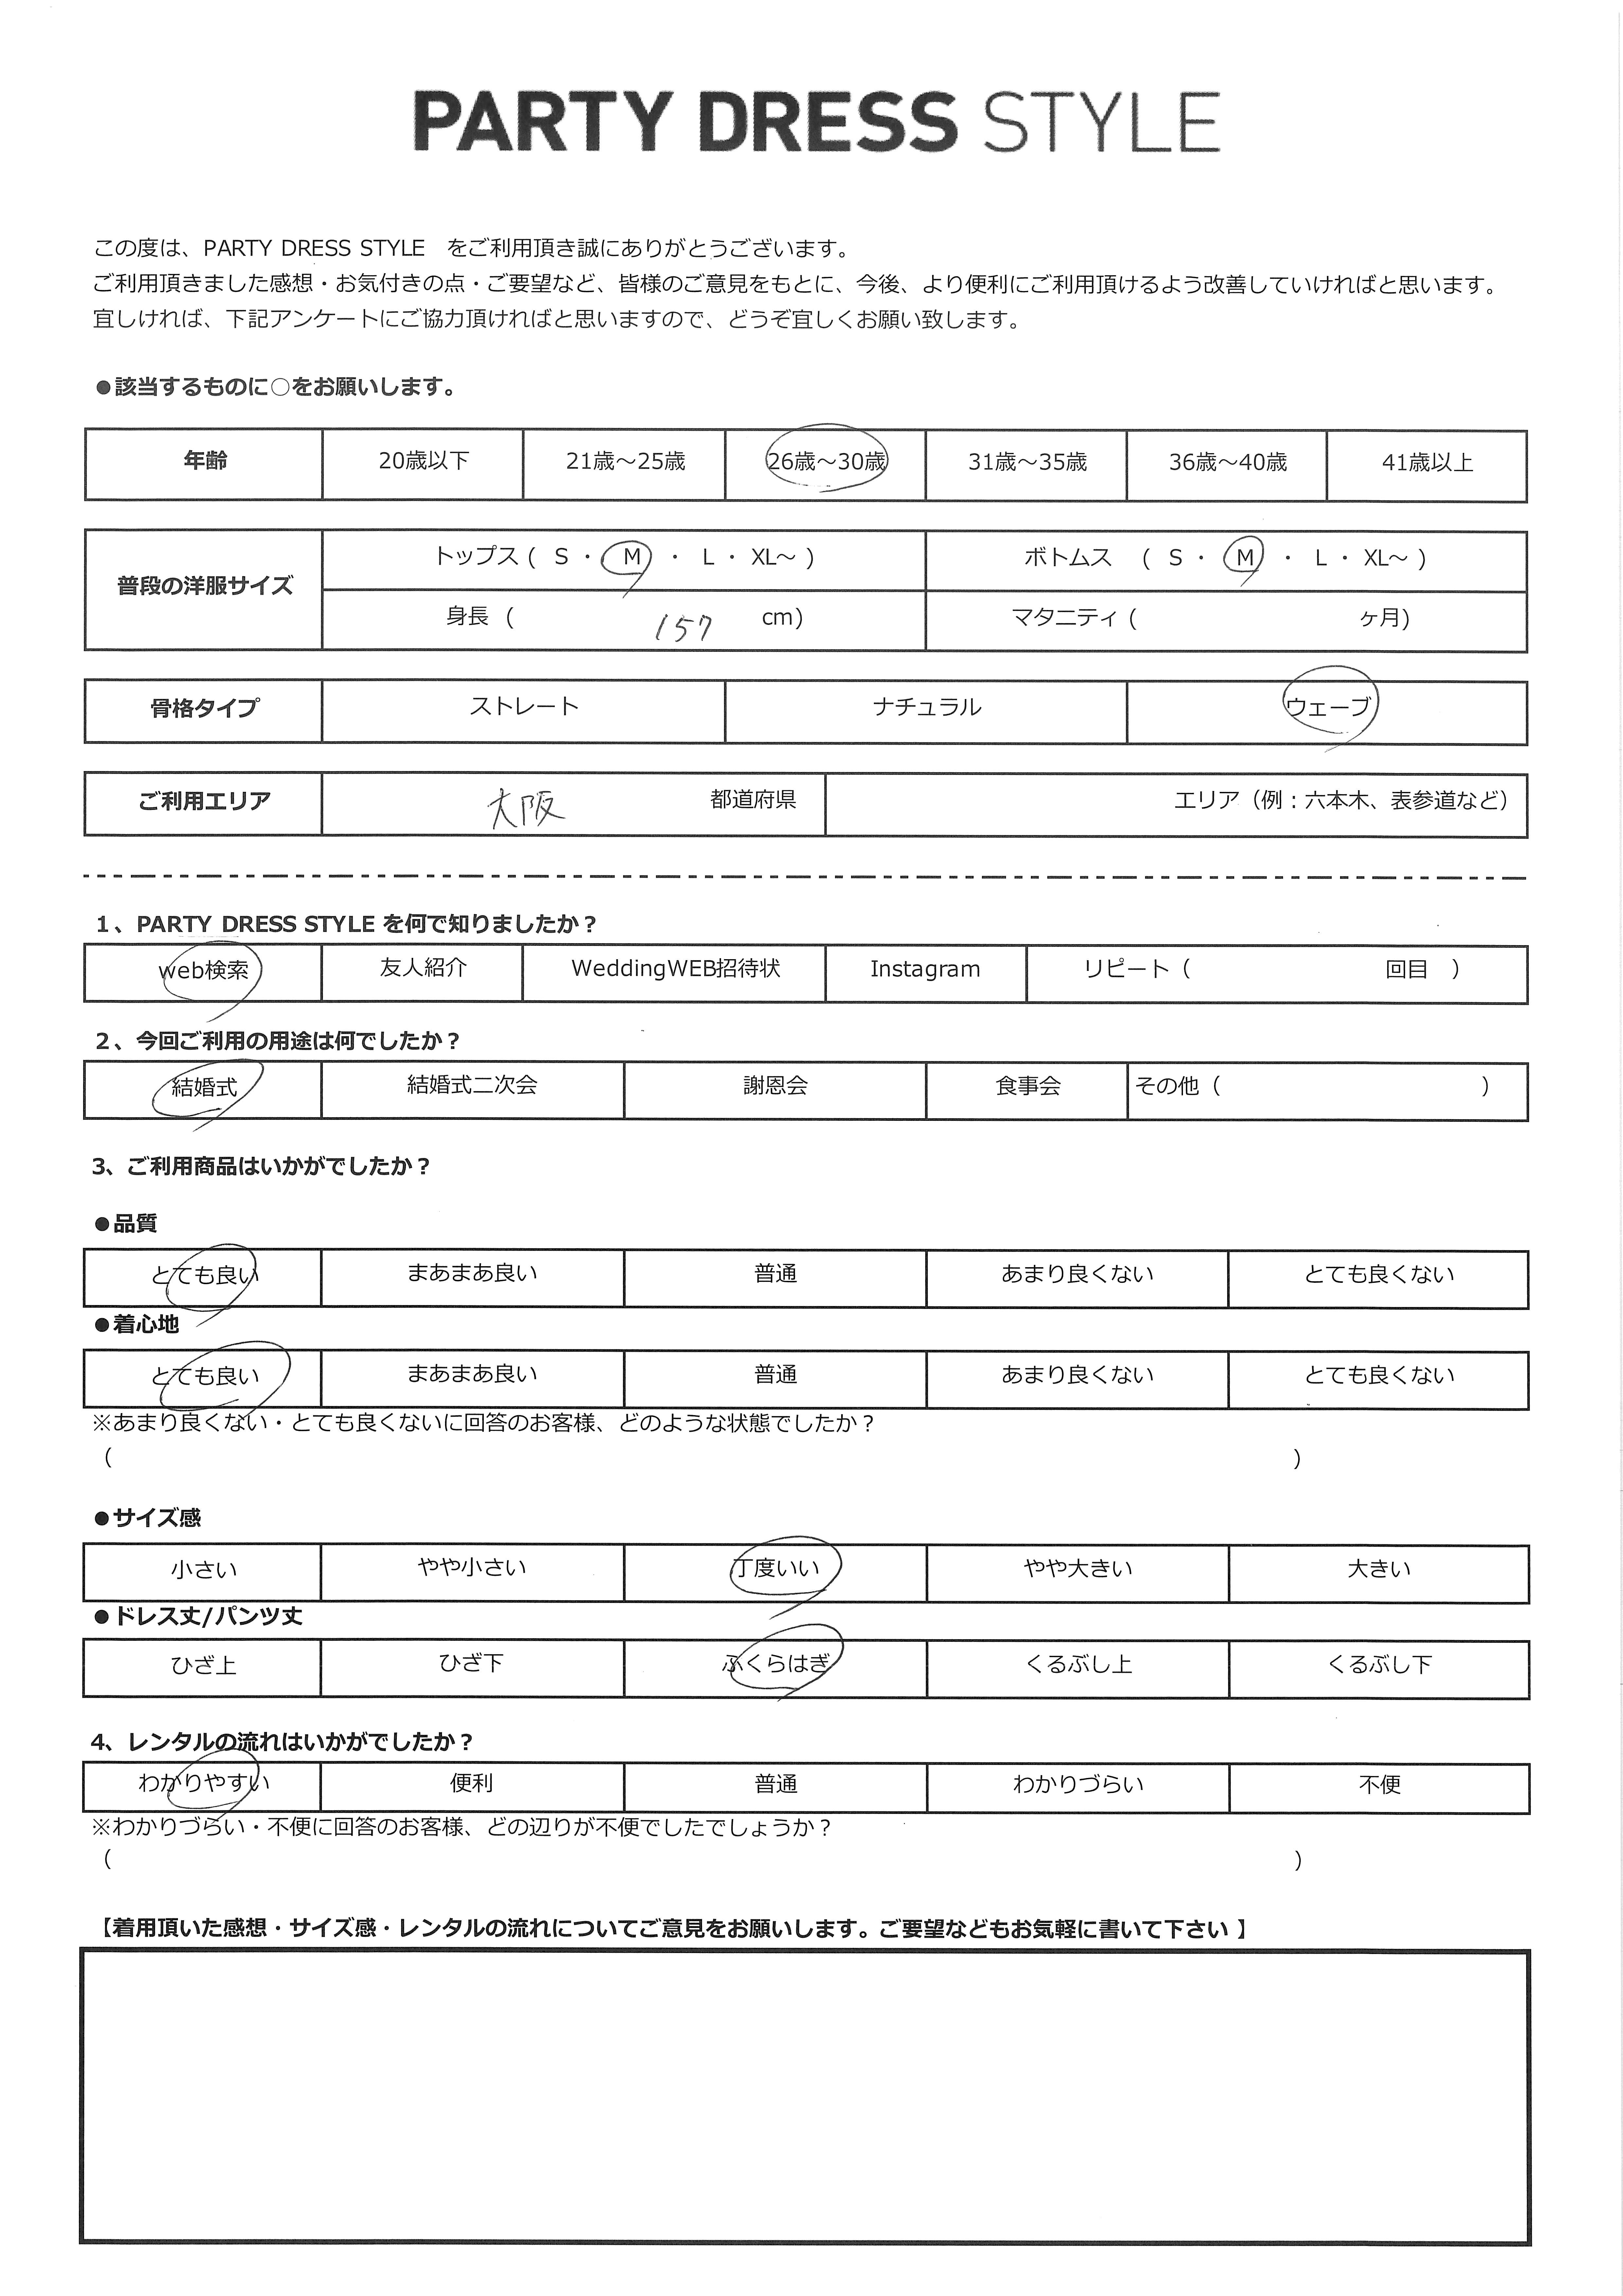 PARTY DRESS STYLE
この度は、PARTY DRESS STYLE　をご利用頂き誠にありがとうございます。
ご利用頂きました感想・お気付きの点・ご要望など、皆様のご意見をもとに、今後、より便利にご利用頂けるよう改善していければと思います。
宜しければ、下記アンケートにご協力頂ければと思いますので、どうぞ宜しくお願い致します。
●該当するものに○をお願いします。
年齢 20歳以下 21歳～25歳 26歳～30歳 31歳～35歳 36歳～40歳 41歳以上
普段の洋服サイズ トップス ( S ・ M ・ L ・ XL～ ) ボトムス ( S ・ M ・ L ・ XL～ )
身長 ( 157 cm) マタニティ ( ヶ月)
骨格タイプ ストレート ナチュラル ウェーブ
ご利用エリア 大阪 都道府県 エリア（例：六本木、表参道など）
1、PARTY DRESS STYLE を何で知りましたか？
web検索 友人紹介 WeddingWEB招待状 Instagram リピート（ 回目 ）
2、今回ご利用の用途は何でしたか？
結婚式 結婚式二次会 謝恩会 食事会 その他（ ）
3、ご利用商品はいかがでしたか？
●品質
とても良い まあまあ良い 普通 あまり良くない とても良くない
●着心地
とても良い まあまあ良い 普通 あまり良くない とても良くない
※あまり良くない・とても良くないに回答のお客様、どのような状態でしたか？
（ ）
●サイズ感
小さい やや小さい 丁度いい やや大きい 大きい
●ドレス丈/パンツ丈
ひざ上 ひざ下 ふくらはぎ くるぶし上 くるぶし下
4、レンタルの流れはいかがでしたか？
わかりやすい 便利 普通 わかりづらい 不便
※わかりづらい・不便に回答のお客様、どの辺りが不便でしたでしょうか？
（ ）
【着用頂いた感想・サイズ感・レンタルの流れについてご意見をお願いします。ご要望などもお気軽に書いて下さい 】